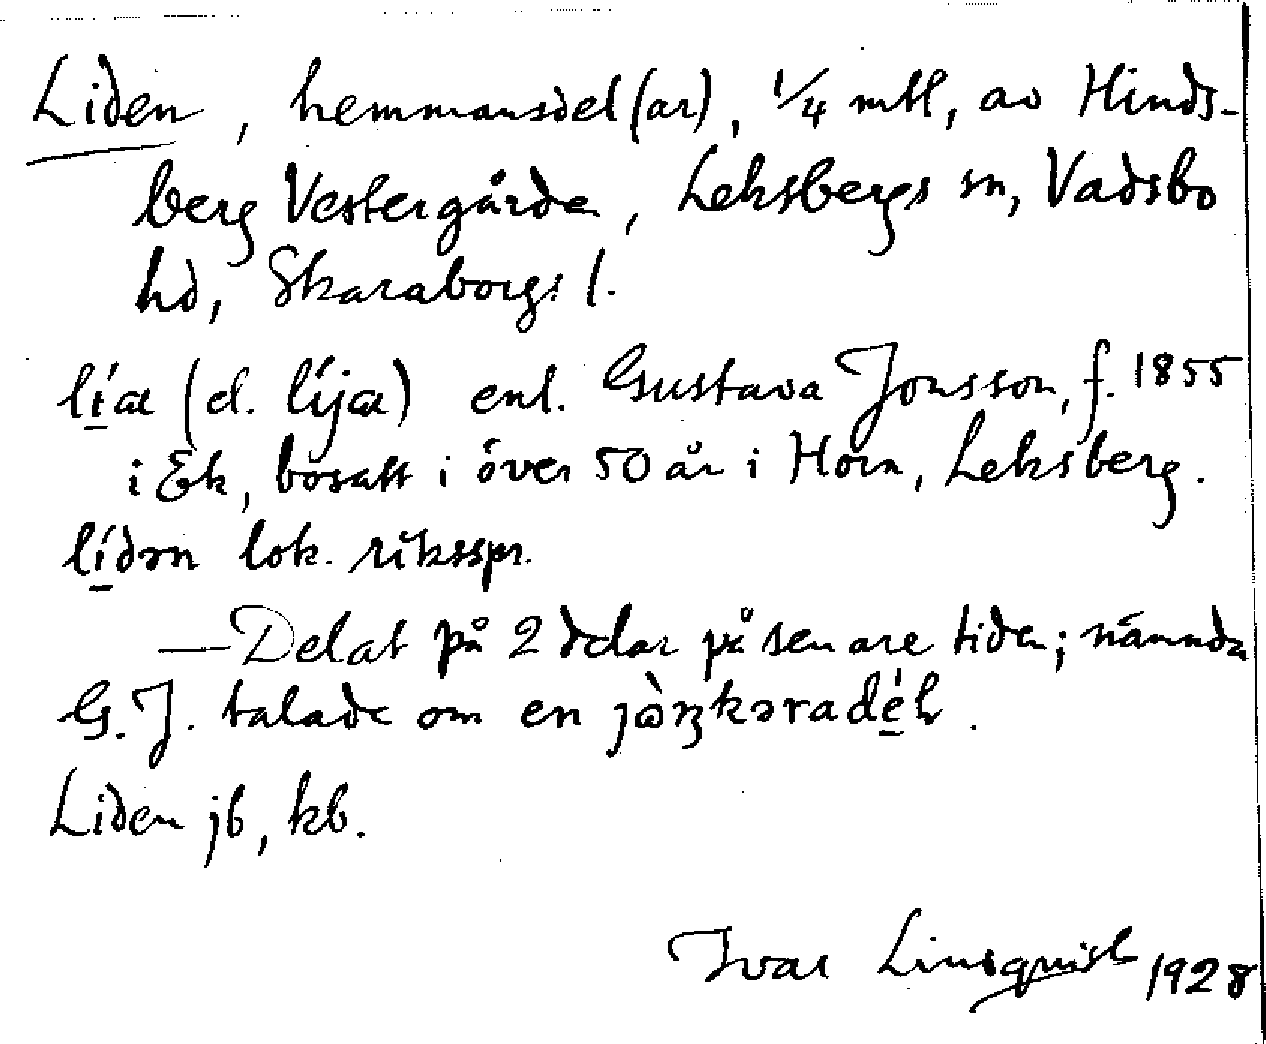 Liden, hemmansdel(ar), 1/4 mtl, av Hinds-
berg Vestergårde, Leksbergs sn, Vadsbo
hd, Skaraborgs l.
lí̠æ (el. líjæ) enl. Gustava Jonsson, f. 1855
i Ek, bosatt i över 50 år i Horn, Leksberg.
lí̠dən lok. riksspr.
— Delat på 2 delar på senare tiden; nämnda
G. J. talade om en
Liden jb, kb.
Ivar Lindquist 1928